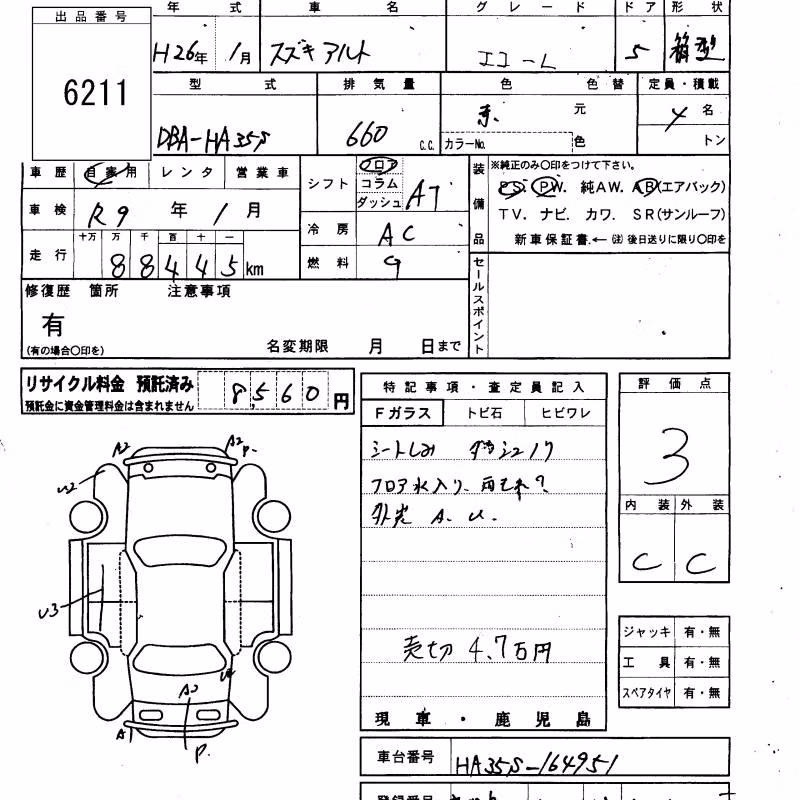 年 式 車 名 グ レ ー ド ドア 形 状
出品番号
6211
H26年 1月 スズキ アルト エコーL 5 箱型
型 式 排気量 色 色替 定員・積載
DBA-HA35S 660 C.C. 赤 元 4名
カラーNo. 色 トン
車歴 自家用 レンタ 営業車
シフト フロア コラム ダッシュ AT
装備品
※純正のみ〇印をつけて下さい。
PS. PW. 純AW. AB(エアバック)
TV. ナビ. カワ. SR(サンルーフ)
新車保証書.← ㊟ 後日送りに限り〇印を
車検 R9 年 1月
冷房 AC
走行 十万 万 千 百 十 一
88445km
燃料 G
セールスポイント
修復歴 箇所 注意事項
有
(有の場合〇印を) 名変期限 月 日まで
リサイクル料金 預託済み 8,560円
預託金に資金管理料金は含まれません
特記事項・査定員記入
Fガラス トビ石 ヒビワレ
シートしみ
フロア水入り. ?
A. U.
売切 4.7万円
現車・鹿児島
評価点
3
内装 外装
C C
ジャッキ 有・無
工具 有・無
スペアタイヤ 有・無
A2 A2 P.
U2
U3
A P.
車台番号 HA35S-164951
登録番号